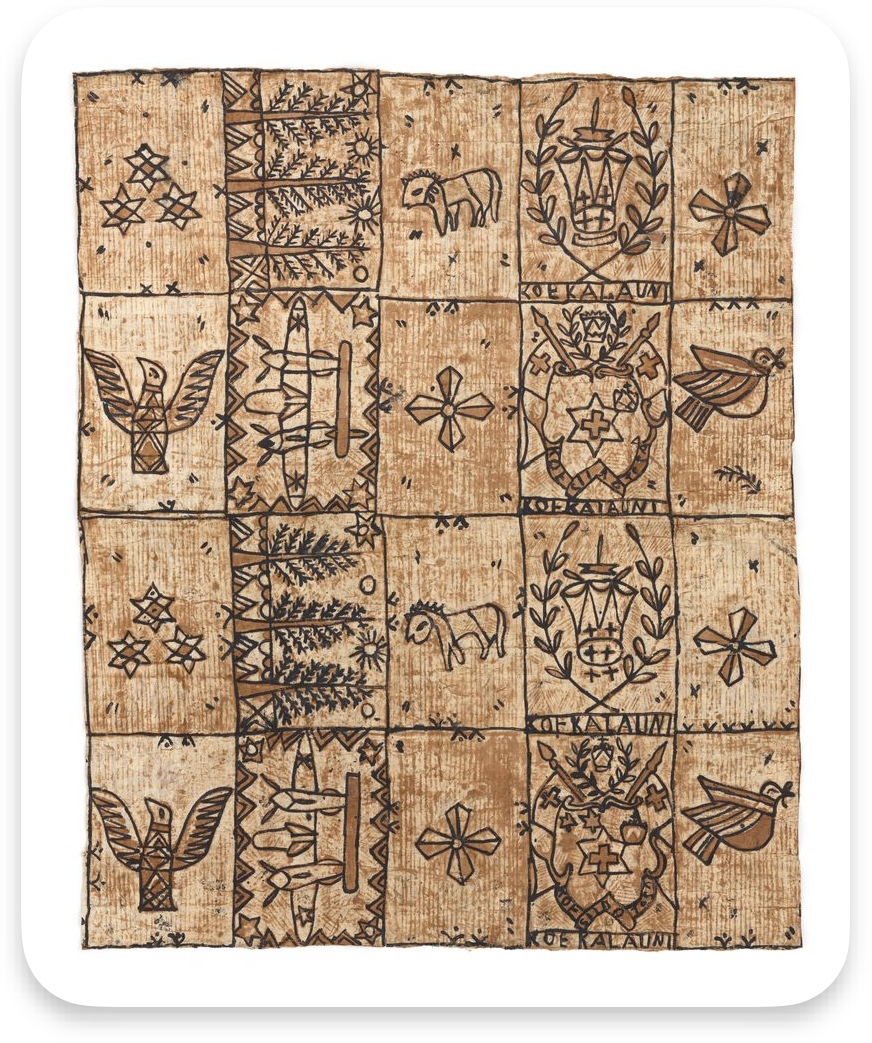 KOE KALAUNI
KOE KALAUNI
KOE KALAUNI
KOE KALAUNI